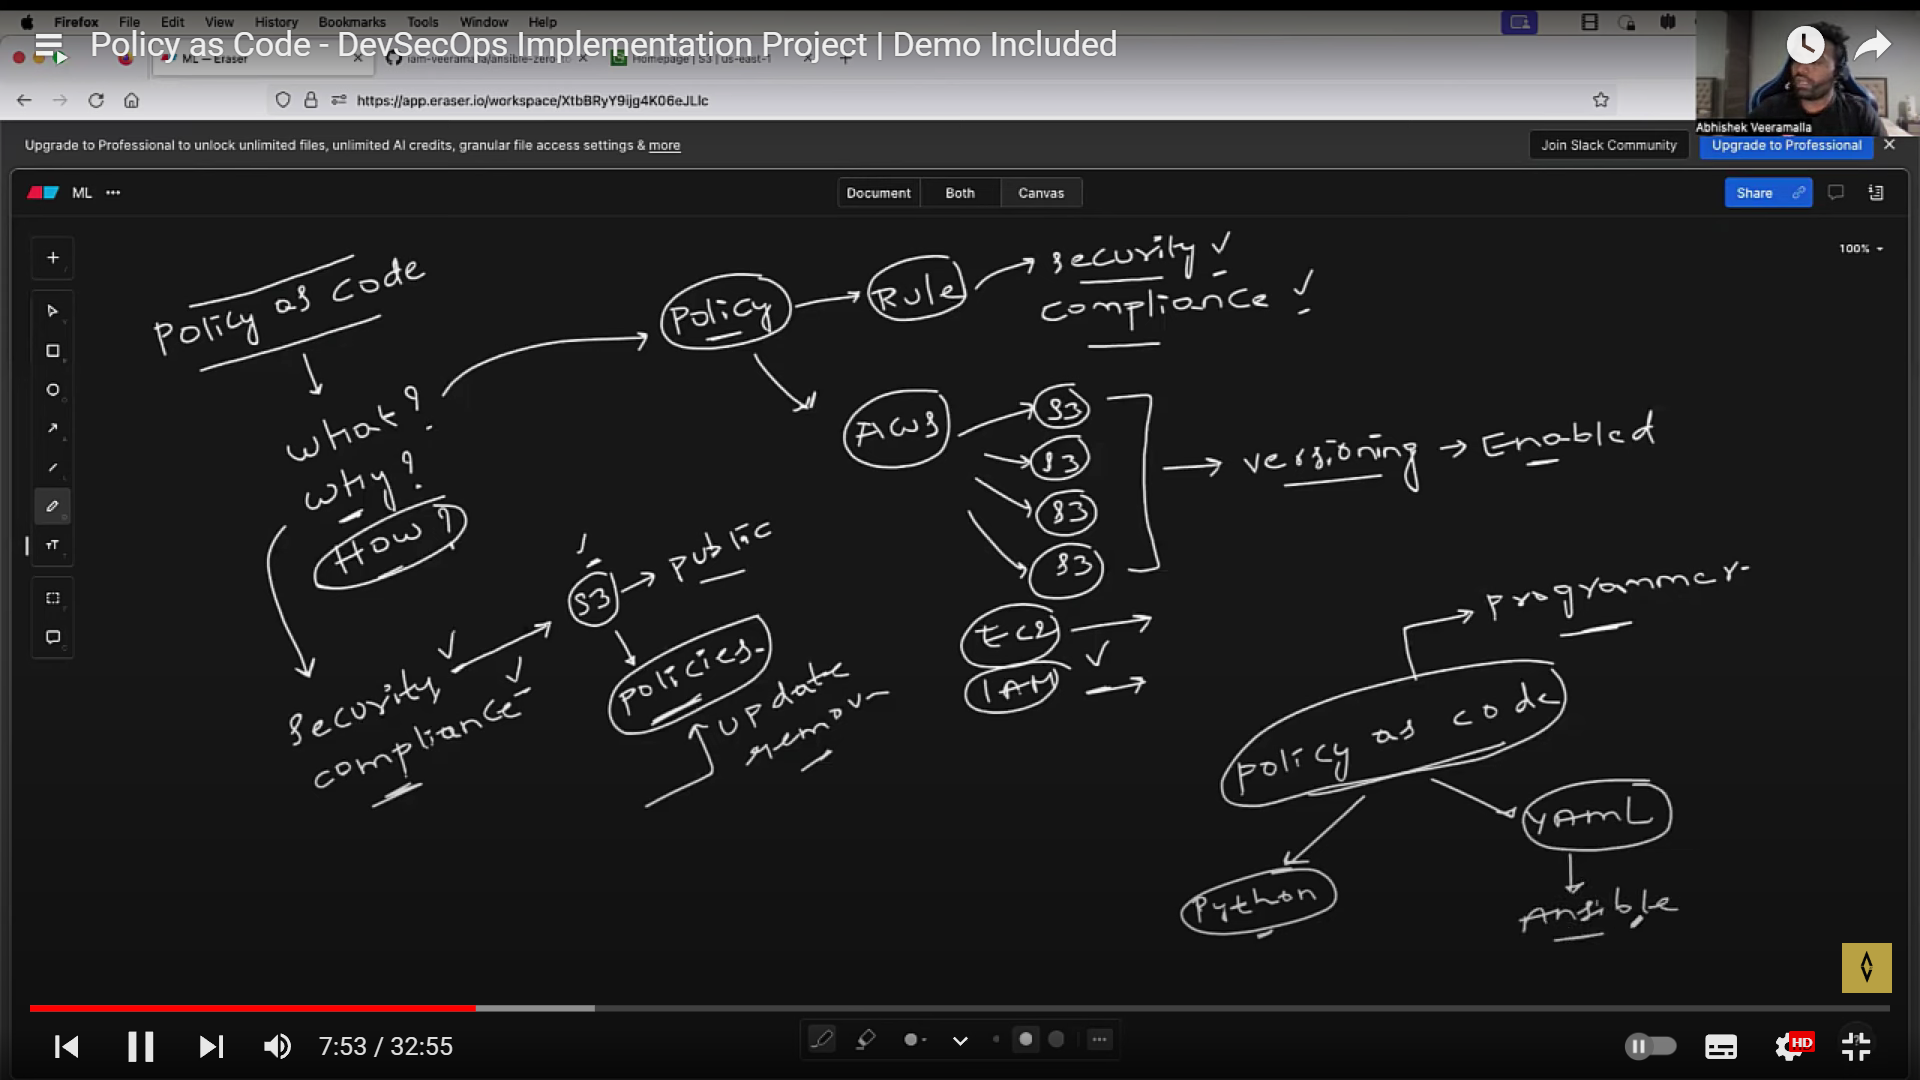 Firefox File Edit View History Bookmarks Tools Window Help
Policy as Code - DevSecOps Implementation Project | Demo Included
ML — Eraser
iam-veeramalla/ansible-zero-to
Homepage | S3 | us-east-1
https://app.eraser.io/workspace/XtbBRyY9ijg4K06eJLIc
Abhishek Veeramalla
Upgrade to Professional to unlock unlimited files, unlimited AI credits, granular file access settings & more
Join Slack Community
Upgrade to Professional
ML
Document Both Canvas
Share
100%
Policy as code
What?
Why?
How?
Policy
Rule
security
compliance
AWS
S3
S3
S3
S3
versioning → Enabled
EC2
IAM
S3
public
policies
update
remov
security
compliance
Programmer
policy as code
Python
YAML
Ansible
7:53 / 32:55
HD